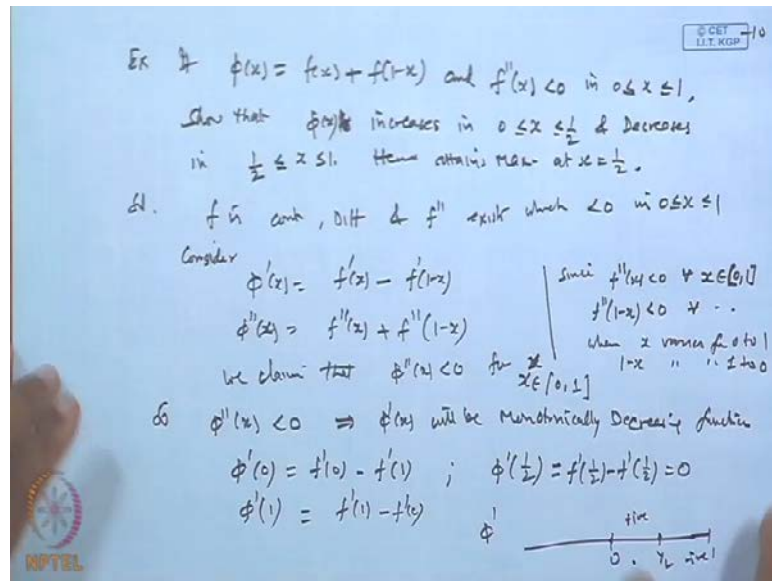 © CET
I.I.T. KGP
-10
Ex If φ(x) = f(x) + f(1-x) and f''(x) <0 in 0≤ x ≤1,
Show that φ(x) increases in 0 ≤ x ≤ 1/2 & Decreases
in 1/2 ≤ x ≤1. Hence attains max at x = 1/2.
Sol. f is cont, Diff & f'' exist which <0 in 0≤x≤1
Consider
φ'(x) = f'(x) - f'(1-x)
φ''(x) = f''(x) + f''(1-x)
we claim that φ''(x) <0 for
x∈[0,1]
Since f''(x) <0 ∀ x∈[0,1]
f''(1-x) <0 ∀ ..
when x varies 0 to 1
1-x " " 1 to 0
So φ''(x) <0 ⇒ φ'(x) will be Monotonically Decreasing function
φ'(0) = f'(0) - f'(1) ; φ'(1/2) = f'(1/2) - f'(1/2) = 0
φ'(1) = f'(1) - f'(0)
φ'
+ive
0 . 1/2 -ive 1
NPTEL